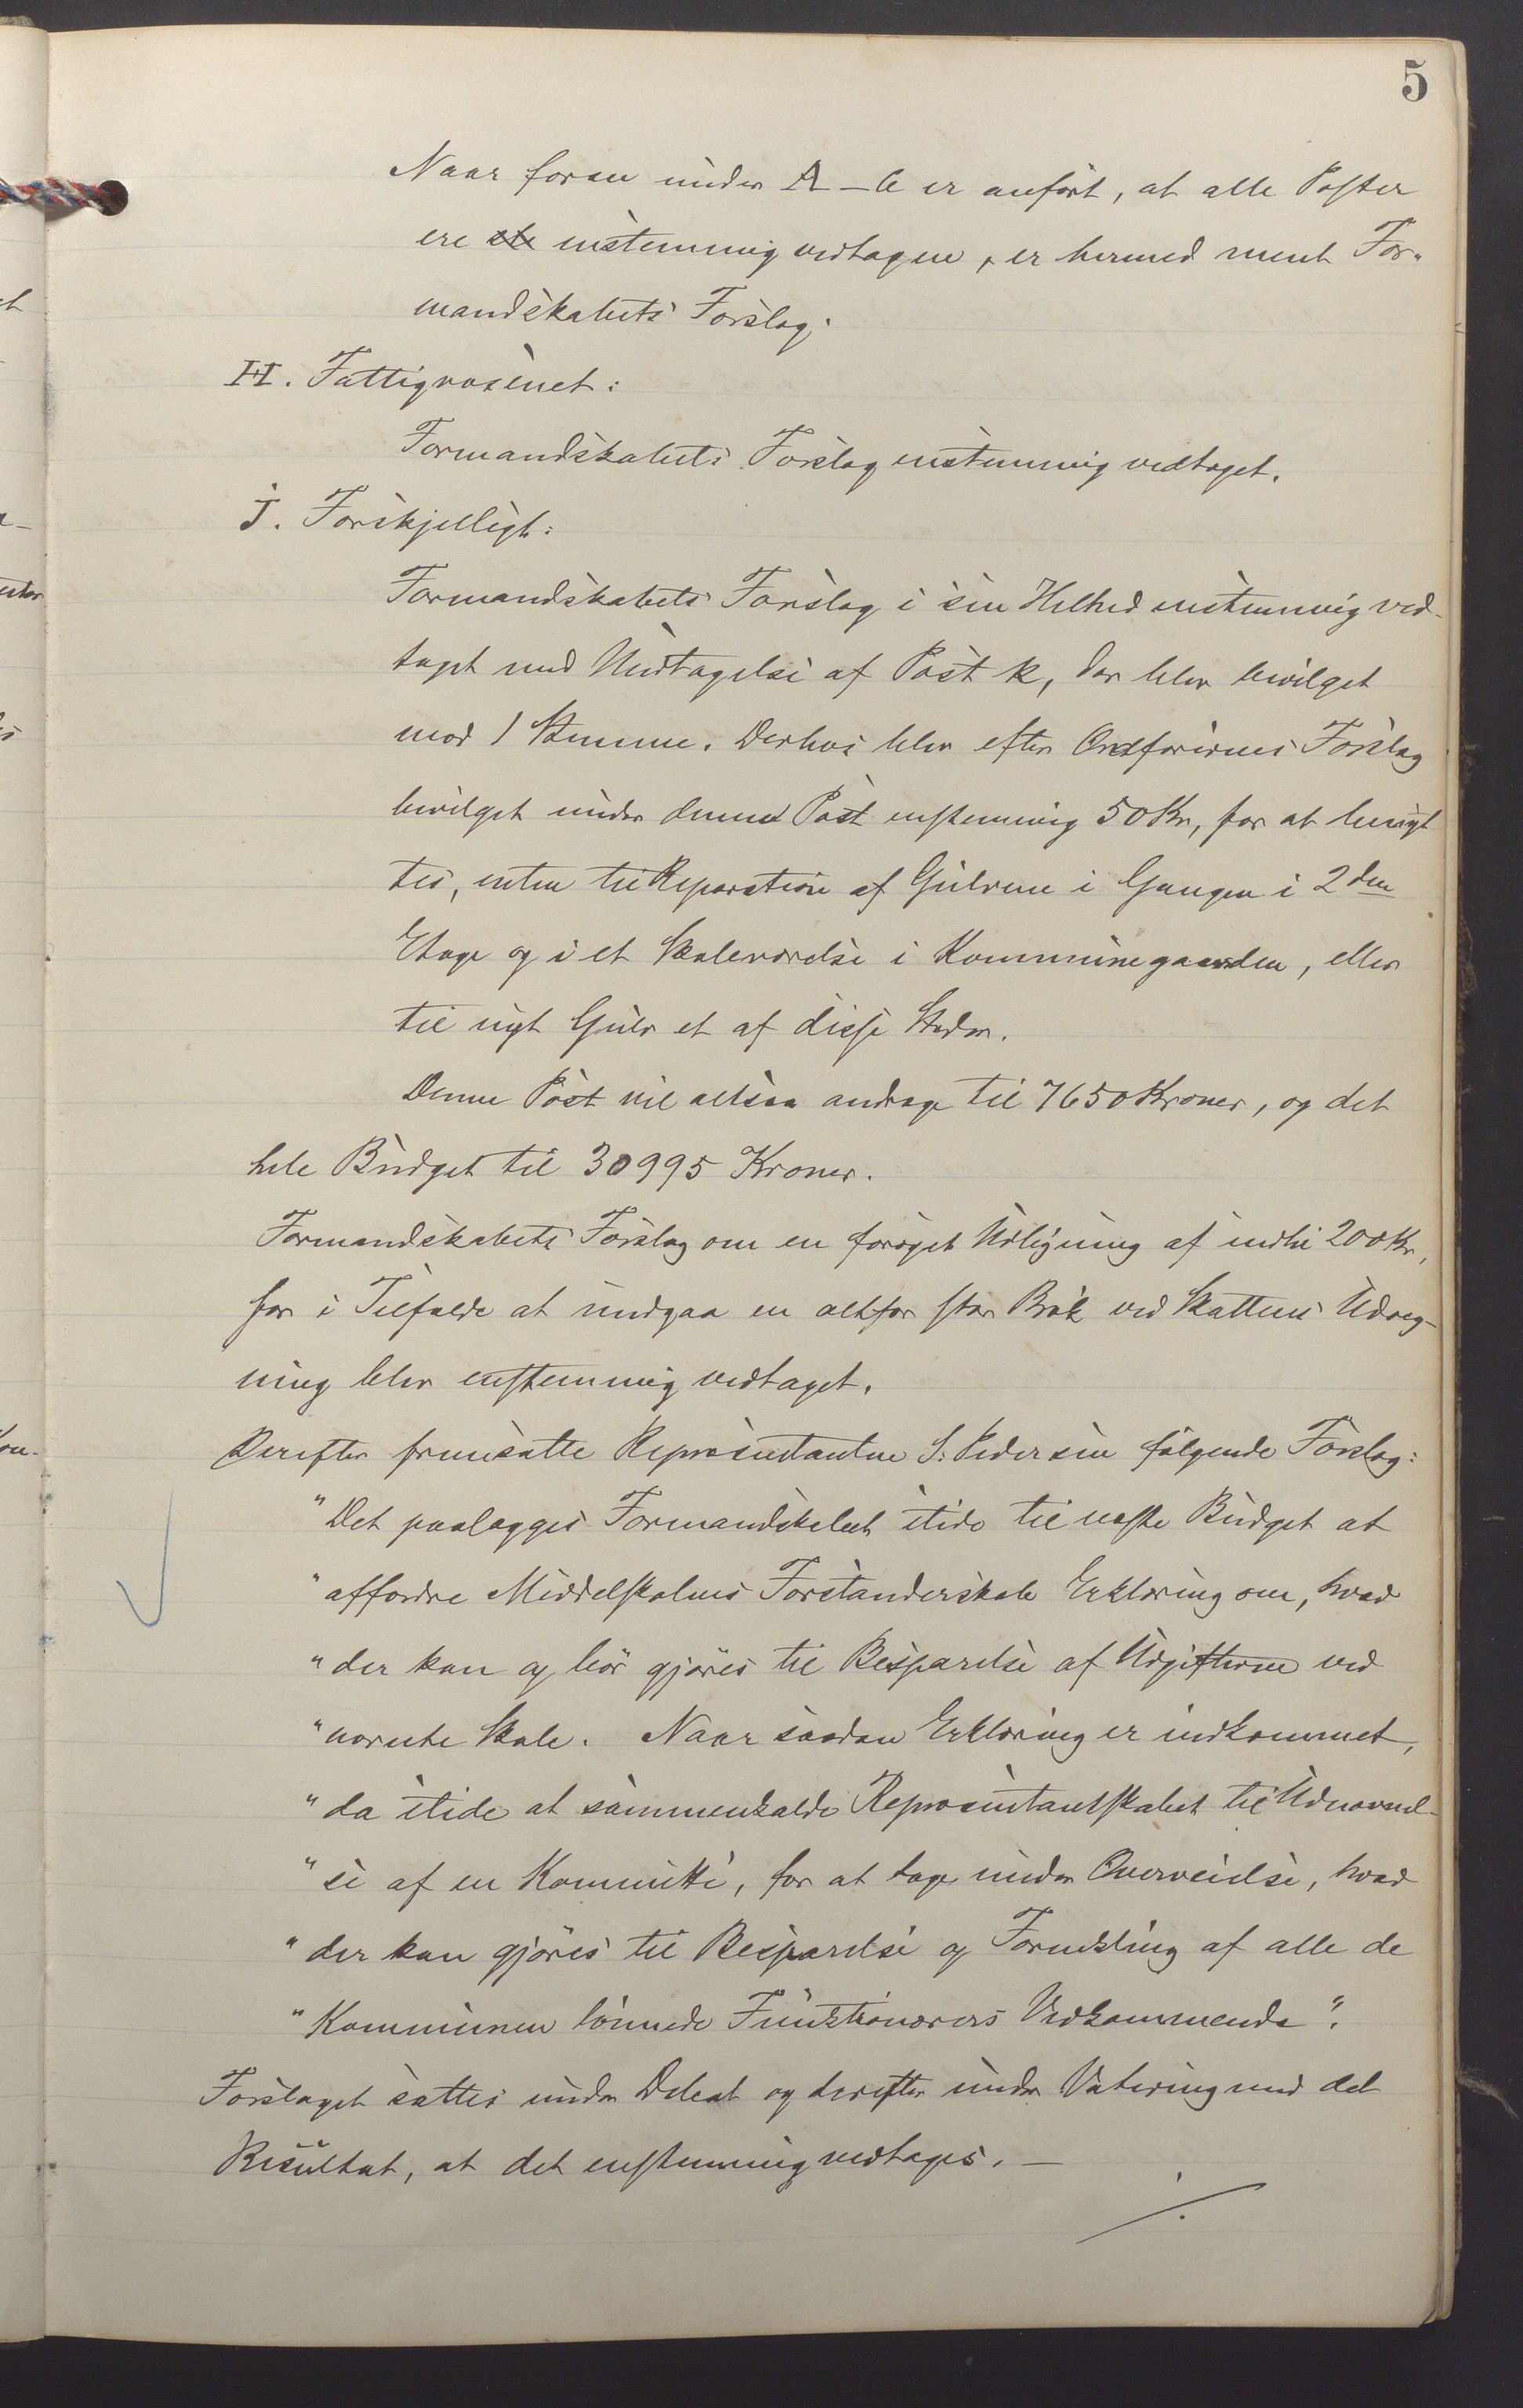 5
Naar foran under A-G er anført, at alle Poster
ere enstemmig vedtagen, er hermed ment For-
mandskabets Forslag.
H. Fattigvæsenet:
Formandskabets Forslag enstemmig vedtaget.
J. Forskjelligt:
Formandskabets Forslag i sin Helhed enstemmig ved-
taget med Undtagelse af Post k, der blev bevilget
mod 1 Stemme. Derhos blev efter Ordførerens Forslag
bevilget under denne Post enstemmig 50 Kr, for at benyt
tes, enten til Reparation af Gulvene i Gangen i 2den
Etage og i et Skoleværelse i Kommunegaarden, eller
til nyt Gulv et af disse Steder.
Denne Post vil altsaa andrage til 7650 Kroner, og det
hele Budget til 30995 Kroner.
Formandskabets Forslag om en forøget Udligning af indtil 200 Kr,
for i Tilfælde at undgaa en altfor stor Brøk ved Skattens Udreg-
ning blev enstemmig vedtaget.
Derefter fremsatte Repræsentanten S. Pedersen følgende Forslag:
"Det paalægges Formandskabet itide til næste Budget at
"affordre Middelskolens Forstanderskab Erklæring om, hvad
"der kan og bør gjøres til Besparelse af Udgifterne ved
"nævnte Skole. Naar saadan Erklæring er indkommet,
"da itide at sammenkalde Repræsentantskabet til Udnævnel-
"se af en Kommitte, for at tage under Overveielse, hvad
"der kan gjøres til Besparelse og Forenkling af alle de
"Kommunen lønnede Funktionærers Vedkommende".
Forslaget sattes under Debat og derefter under Votering med det
Resultat, at det enstemmig vedtages. —
./.